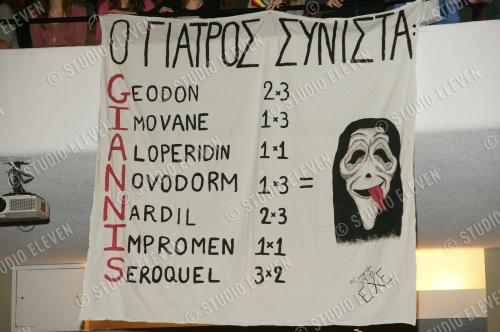 Ο ΓΙΑΤΡΟΣ ΣΥΝΙΣΤΑ:
GEODON 2×3
IMOVANE 1×3
ALOPERIDIN 1×1
NOVODORM 1×3 =
NARDIL 2×3
IMPROMEN 1×1
SEROQUEL 3×2
EXE
© STUDIO ELEVEN